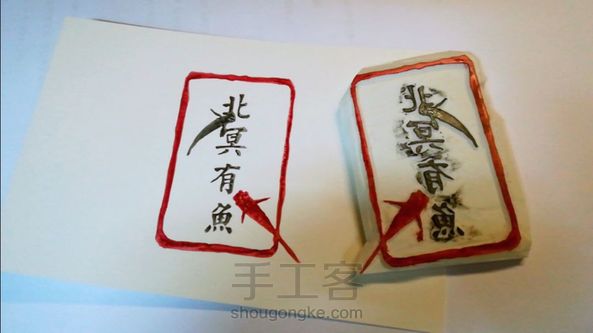 北
冥
有
魚
北
冥
有
魚
手工客
shougongke.com